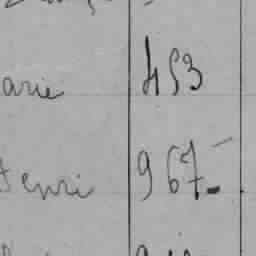 arie 453
Henri 967